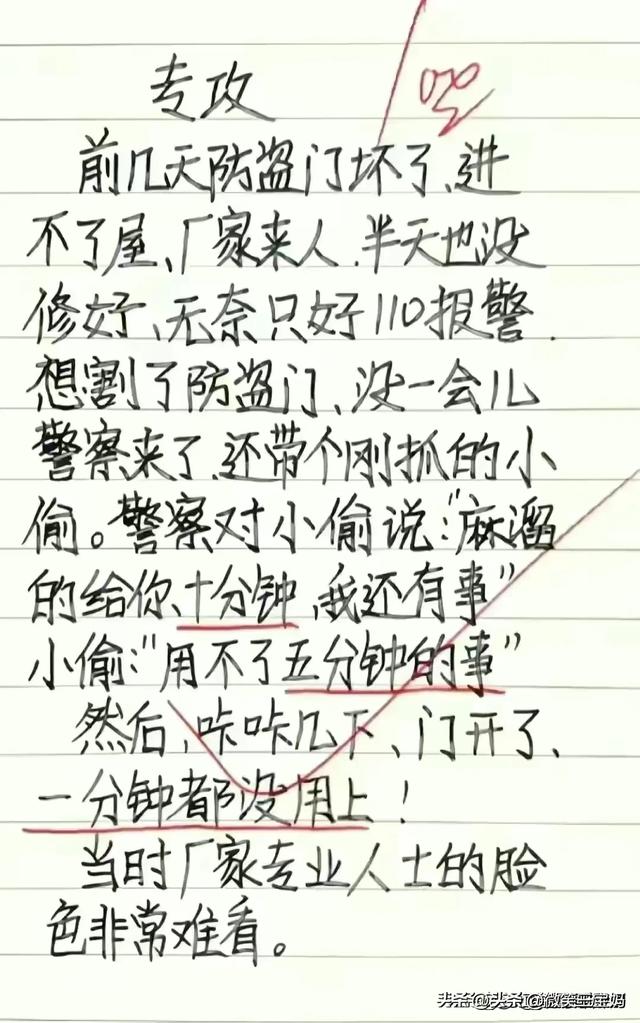 专攻
前几天防盗门坏了、进
不了屋、厂家来人、半天也没
修好、无奈只好110报警、
想割了防盗门、没一会儿
警察来了、还带个刚抓的小
偷。警察对小偷说："麻溜
的给你、十分钟、我还有事"
小偷："用不了五分钟的事"
然后、咔咔几下、门开了、
一分钟都没用上！
当时厂家专业人士的脸
色非常难看。
头条@微笑王宝妈